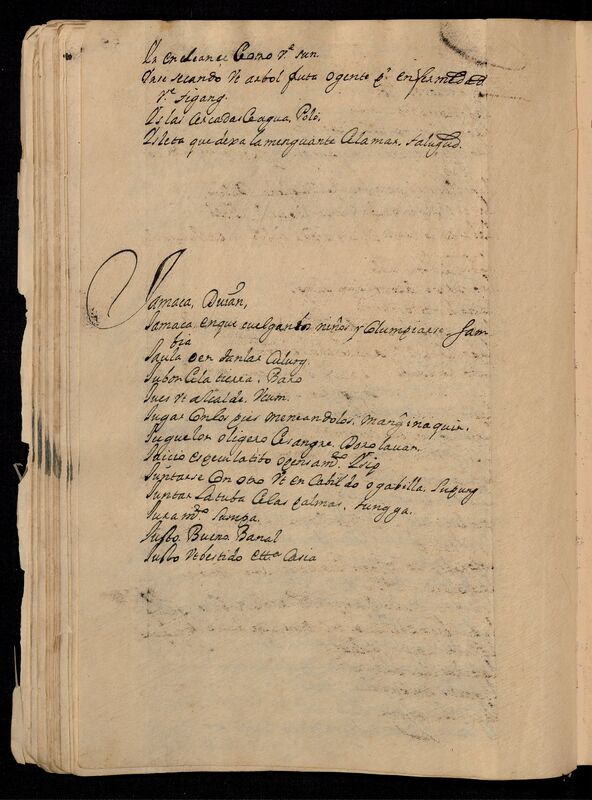 Yr en el can el Como Vᵉ sun.
Yrse secando Vt arbol fruta o gente pʳ enfermedad
Vᵉ tigang.
Yslas cercadas de agua. Polô.
Ysleta que dexa la menguante de la mar. talugtud.
Jamaca, Duian,
Jamaca en que cuelgan los niños y Columpiarse. sam
bia
Jaula o en Janlar Culung
Jubon de la tierra. Baro
Jues Vt alcalde. Ucum.
Jugar con los pies meneandolos. manginaquin.
Juguelon o ligero de sangre. Doro lauan.
Juicio especulatibo o pensamᵗᵒ. Ysip
Juntarse con otro Vt en Cabildo o gabilla. Supung
Juntar La tuba de las palmas. tungga.
Juramᵗᵒ Sumpa.
Justo. Bueno. Banal
Justo Vt bestido ettᵃ Casia